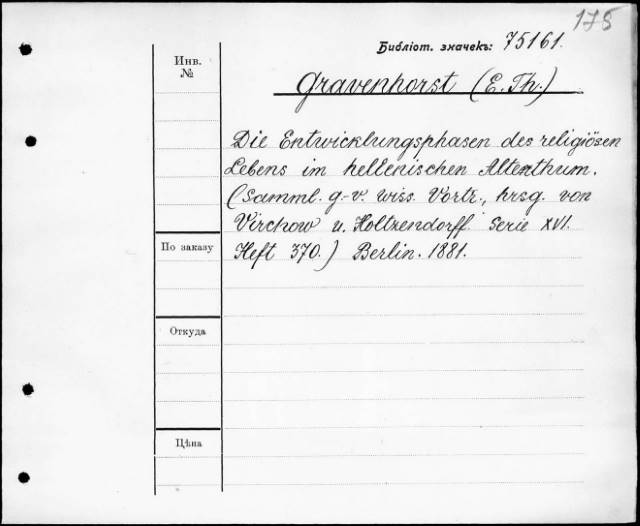 175
Библіот. значекъ: 75161.
Инв.
№
Gravenhorst (E. Th.)
Die Entwicklungsphasen des religiösen
Lebens im hellenischen Altenthum.
(Samml. g.-v. wiss. Vortr., hrsg. von
Virchow u. Holtzendorff. Serie XVI.
По заказу
Heft 370.) Berlin. 1881.
Откуда
Цѣна